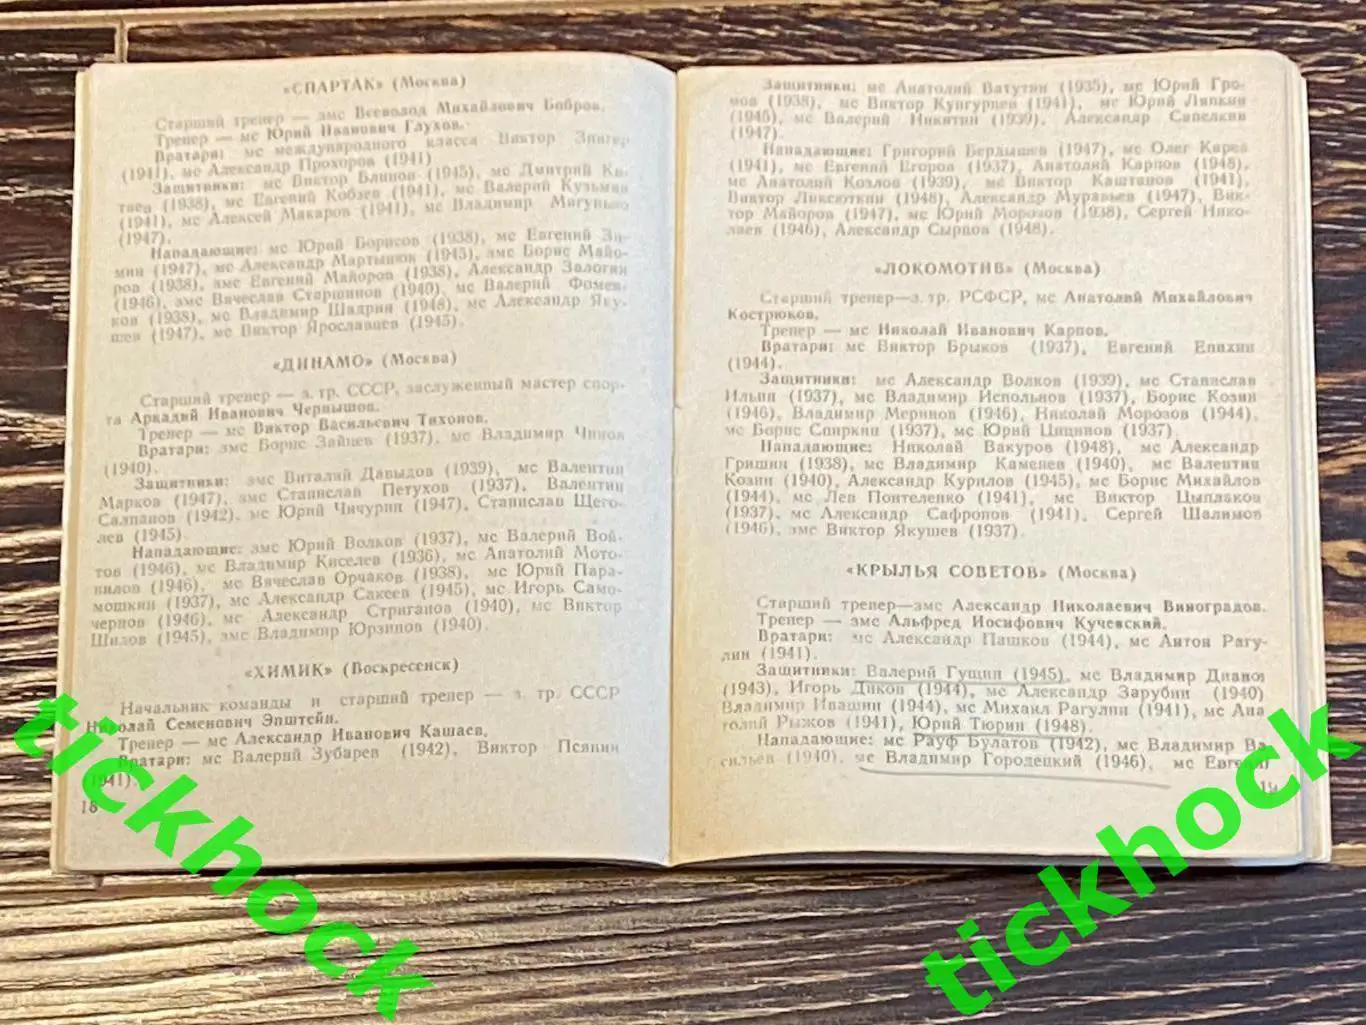 «СПАРТАК» (Москва)
Старший тренер — змс Всеволод Михайлович Бобров.
Тренер — мс Юрий Иванович Глухов.
Вратари: мс международного класса Виктор Зингер
(1941), мс Александр Прохоров (1941)
Защитники: мс Виктор Блинов (1945), мс Дмитрий Ки-
таев (1938), мс Евгений Кобзев (1941), мс Валерий Кузьмин
(1941), мс Алексей Макаров (1941), мс Владимир Мигунько
(1947).
Нападающие: мс Юрий Борисов (1938), мс Евгений Зи-
мин (1947), мс Александр Мартынюк (1945), змс Борис Майо-
ров (1938), змс Евгений Майоров (1938), Александр Залогин
(1946), змс Вячеслав Старшинов (1940), мс Валерий Фомен-
ков (1938), мс Владимир Шадрин (1948), мс Александр Яку-
шев (1947), мс Виктор Ярославцев (1945).
«ДИНАМО» (Москва)
Старший тренер — з. тр. СССР, заслуженный мастер спор-
та Аркадий Иванович Чернышов.
Тренер — мс Виктор Васильевич Тихонов.
Вратари: змс Борис Зайцев (1937), мс Владимир Чинов
(1940).
Защитники: змс Виталий Давыдов (1939), мс Валентин
Марков (1947), змс Станислав Петухов (1937), Валентин
Салпанов (1942), мс Юрий Чичурин (1947), Станислав Щего-
лев (1945).
Нападающие: змс Юрий Волков (1937), мс Валерий Вой-
тов (1946), мс Владимир Киселев (1936), мс Анатолий Мото-
вилов (1946), мс Вячеслав Орчаков (1938), мс Юрий Пара-
мошкин (1937), мс Александр Сакеев (1945), мс Игорь Само-
чернов (1946), мс Александр Стриганов (1940), мс Виктор
Шилов (1945), змс Владимир Юрзинов (1940).
«ХИМИК» (Воскресенск)
Начальник команды и старший тренер — з. тр. СССР
Николай Семенович Эпштейн.
Тренер — мс Александр Иванович Кашаев.
Вратари: мс Валерий Зубарев (1942), Виктор Псянин
(1941).
18
Защитники: мс Анатолий Ватутин (1935), мс Юрий Гро-
мов (1938), мс Виктор Кунгурцев (1941), мс Юрий Ляпкин
(1945), мс Валерий Никитин (1939), Александр Сапелкин
(1947).
Нападающие: Григорий Бердышев (1947), мс Олег Карев
(1941), мс Евгений Егоров (1937), Анатолий Карпов (1948),
мс Анатолий Козлов (1939), мс Виктор Каштанов (1941),
Виктор Ликсюткин (1948), Александр Муравьев (1947), Вик-
тор Майоров (1947), мс Юрий Морозов (1938), Сергей Нико-
лаев (1946), Александр Сырцов (1948).
«ЛОКОМОТИВ» (Москва)
Старший тренер—з. тр. РСФСР, мс Анатолий Михайлович
Кострюков.
Тренер — мс Николай Иванович Карпов.
Вратари: мс Виктор Брыков (1937), Евгений Епихин
(1944).
Защитники: мс Александр Волков (1939), мс Станислав
Ильин (1937), мс Владимир Испольнов (1937), Борис Козин
(1946), Владимир Меринов (1946), Николай Морозов (1944),
мс Борис Спиркин (1937), мс Юрий Цицинов (1937).
Нападающие: Николай Вакуров (1948), мс Александр
Гришин (1938), мс Владимир Каменев (1940), мс Валентин
Козин (1940), Александр Курилов (1945), мс Борис Михайлов
(1944), мс Лев Понтеленко (1941), мс Виктор Цыплаков
(1937), мс Александр Сафронов (1941), Сергей Шалимов
(1946), змс Виктор Якушев (1937).
«КРЫЛЬЯ СОВЕТОВ» (Москва)
Старший тренер—змс Александр Николаевич Виноградов.
Тренер — змс Альфред Иосифович Кучевский.
Вратари: мс Александр Пашков (1944), мс Антон Рагу-
лин (1941).
Защитники: Валерий Гущин (1945), мс Владимир Дианов
(1943), Игорь Диков (1944), мс Александр Зарубин (1940)
Владимир Ивашин (1944), мс Михаил Рагулин (1941), мс Ана
толий Рыжов (1941), Юрий Тюрин (1948).
Нападающие: мс Рауф Булатов (1942), мс Владимир Ва-
сильев (1940), мс Владимир Городецкий (1946), мс Евгений
19
tickhock
tickhock